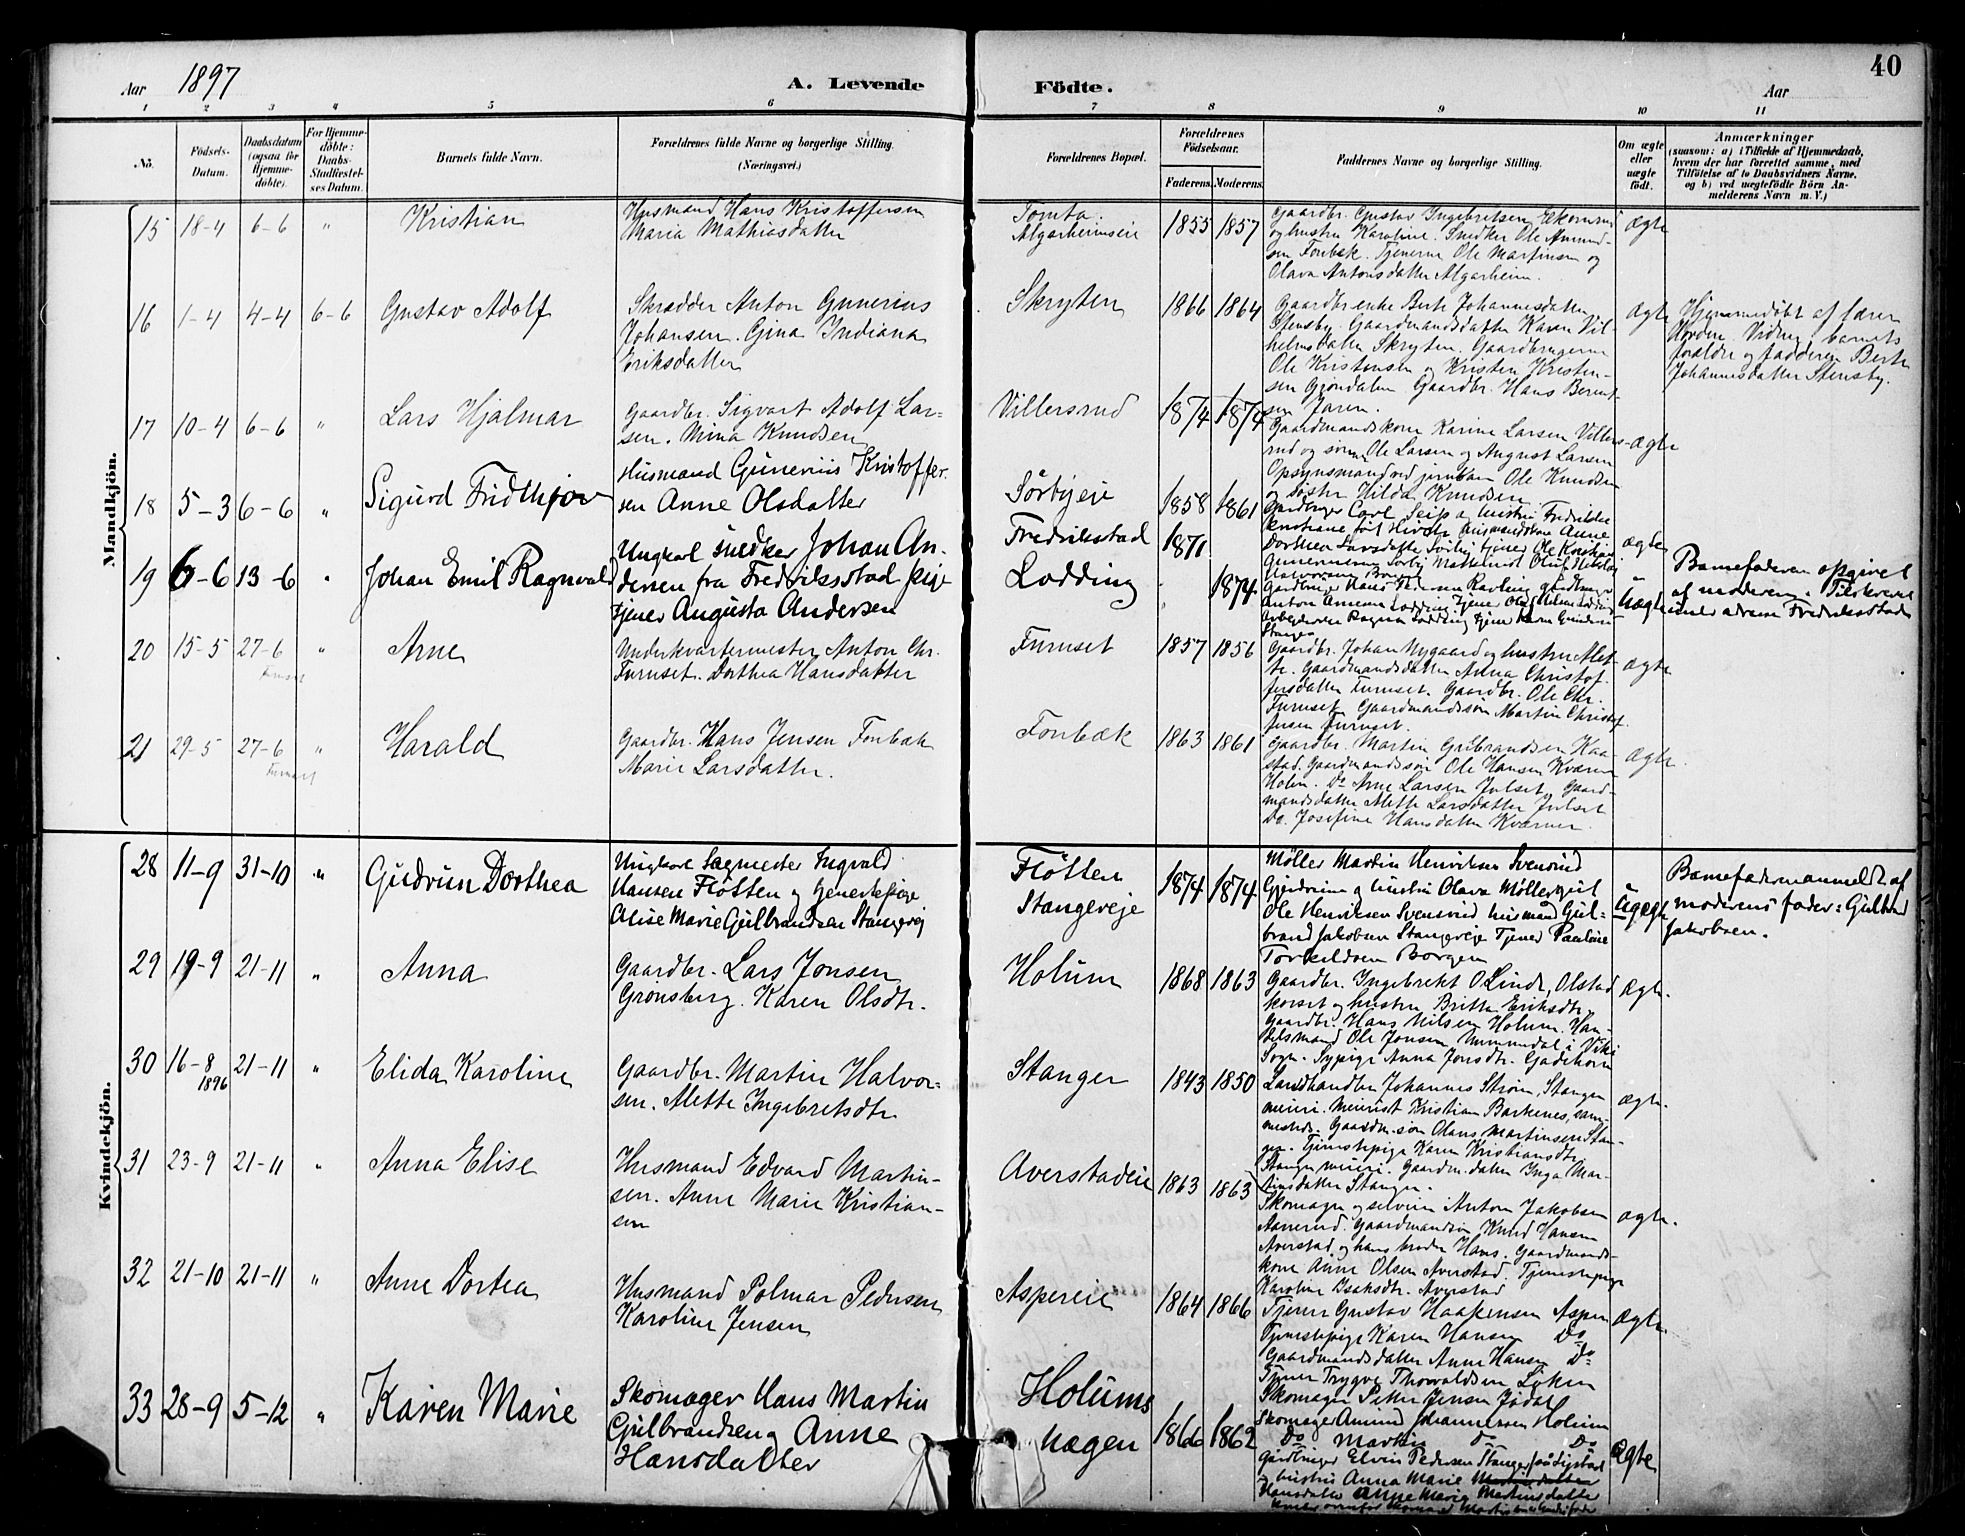 Aar 1897
A. Levende Födte.
Aar
40
1 2 3 4 5 6 7 8 9 10 11
No.
Födsels-Datum.
Daabsdatum (ogsaa for Hjemme-döbte).
For Hjemme-döbte: Daabs-Stadfæstel-ses Datum.
Barnets fulde Navn.
Forældrenes fulde Navne og borgerlige Stilling.
(Næringsvei.)
Forældrenes Bopæl.
Forældrenes Födselsaar.
Faderens. Moderens.
Faddernes Navne og borgerlige Stilling.
Om ægte eller uægte födt.
Anmærkninger
(saasom: a) i Tilfælde af Hjemmedaab,
hvem der har forrettet samme, med
Tilföielse af to Daabsvidners Navne.
og b) ved uægtefödte Börn An-
melderens Navn m. V.)
Mandkjön.
15 18-4 6-6 " Kristian
Husmand Hans Kristoffersen
Maria Mathiasdatter
Tomta
Algarheimseie
1855 1857
Gaardbr. Gustav Ingebretsen Ekornrud
og hustru Karoline. Snedker Ole Amund-
sen Fonbæk. Tjenerne Ole Martinsen og
Olava Antonsdatter Algarheim.
ægte
16 1-4 4-4 6-6 Gustav Adolf
Skrædder Anton Gunerius
Johansen. Gina Indiana
Eriksdatter
Skryten
1866 1864
Gaardbr.enke Berte Johannesdatter
Stensby. Gaardmandsdatter Karen Vil-
helmsdatter Skryten. Gaardbrugerne
Ole Kristensen og Kristen Kristen-
sen Gjøndalen Gaardbr. Hans Bernt-
sen Jaren.
ægte
Hjemmedøbt af lærer
Vidner, barnets
forældre og fadderen Berte
Johannesdatter Stensby.
17 10-4 6-6 " Lars Hjalmar
Gaardbr. Sigvart Adolf Lar-
sen. Mina Knudsen
Villersrud
1874 1874
Gaardmandskone Karine Larsen Villers-
rud og søn Ole Larsen og August Larsen
Opsynsmand ved jernban Ole Knudsen
og søster Hilda Knudsen.
ægte
18 5-3 6-6 " Sigurd Fridthjov
Husmand Gunerius Kristoffer-
sen Anne Olsdatter
Sörbyeie
1858 1861
Gårdbruger Carl Seip o hustru Fredrikke
Husmandskone Anne
Dorthea Larsdatter Sörby tjener Ole Kristian
ægte
19 6-6 13-6 " Johan Emil Ragnvald
Ungkarl snedker Johan An-
dersen fra Fredriksstad pige
tjener Augusta Andersen
Fredrikstad
Lodding
1871
1874
uægte
Barnefaderen opgivet
af moderen. Tilskrevet
under adresse Fredriksstad
20 15-5 27-6 " Arne
Furuset
Underkvartermester Anton Chr.
Furuset. Dorthea Hansdatter
Furuset
1857 1856
Gaardbr. Johan Nygaard og hustru Alet-
te. Gaardmandsdatter Anna Christof-
fersdatter Furuset. Gaardbr. Ole Chr.
Furuset Gaardmandssøn Martin Christof-
fersen Furuset.
ægte
21 29-5 27-6 " Harald
Furuset
Gaardbr. Hans Jensen Fonbæk
Marie Larsdatter.
Fonbæk
1863 1861
Gaardbr. Martin Gulbrandsen Kaa-
stad. Gaardmandssøn Ole Hansen Kværn
Holm. Do Arne Larsen Julset, Gaard-
mandsdatter Mette Larsdatter Julset
Do. Josefine Hansdatter Kværner.
ægte.
Kvindekjön.
28 11-9 31-10 " Gudrun Dorthea
Ungkarl Sagmester Ingvald
Hansen Flötten og tjenestepige
Alise Marie Gulbrandsen Stangevej
Flötten
Stangeveje
1874 1874
Møller Martin Henriksen Svensrud
Gjerdrum og hustru Olava
Ole Henriksen Svensrud husmand Gul-
brand Jakobsen Stangeveje Tjener Pauline
Torkildsen Borgen
uægte
Barnefaderen anmeldt af
moderens fader: Gulbrand
Jakobsen.
29 19-9 21-11 " Anna
Gaardbr. Lars Jonsen
Grønsberg. Karen Olsdtr.
Holum
1868 1863
Gaardbr. Ingebrekt O. Linde, Olstad
korset og hustru Britta Eriksdtr.
Gaardbr. Hans Nilsen Holum. Han-
delsmand Ole Jonsen Nummedal i Vik i
Sogn. Sypige Anna Jonsdtr. Gadehorn
ægte.
30 16-8 1896 21-11 " Elida Karoline
Gaardbr. Martin Halvor-
sen. Mette Ingebretsdtr.
Stanger
1843 1850
Landhandler Johannes Strøm, Stanger
meieri. Meierist Kristian Barkenes, sam-
mesteds. Gaardm. søn Olaus Martinsen Stan-
ger. Tjenestepige Karen Kristiansdtr.
Stanger meieri. Gaardm. datter Inga Mar-
tinsdatter Stanger.
ægte.
31 23-9 21-11 " Anna Elise
Husmand Edvard Martin-
sen. Anne Marie Kristian-
sen
Averstadeie
1863 1863
Skomager og selveier Anton Jakobsen
Aanerud. Gaardmandssøn Knud Hansen
Averstad og hans broder Hans. Gaardmands-
kone Anne Olsen Averstad. Tjenestepige
Karoline Isaksdtr. Averstad
ægte.
32 21-10 21-11 " Anne Dortea
Husmand Polmar Pedersen
Karoline Jensen
Aspereie
1864 1866
Tjener Gustav Haakensen Asper
Tjenestepige Karen Hansen Do
Gaardmandsdatter Anne Hansen Do
Tjener Trygve Thorvaldsen Løken
Skomager Peter Jensen Jødal
ægte.
33 28-9 5-12 " Karen Marie
Skomager Hans Martin
Gulbrandsen og Anne
Hansdatter
Holums
hagen
1866 1862
Skomager Amund Johannessen Holum
Do Martin do Do
Gårdbruger Elvin Pedersen Stanger
og hustru Anna Marie
Hansdatter Anne Marie Martinsdatter
ægte